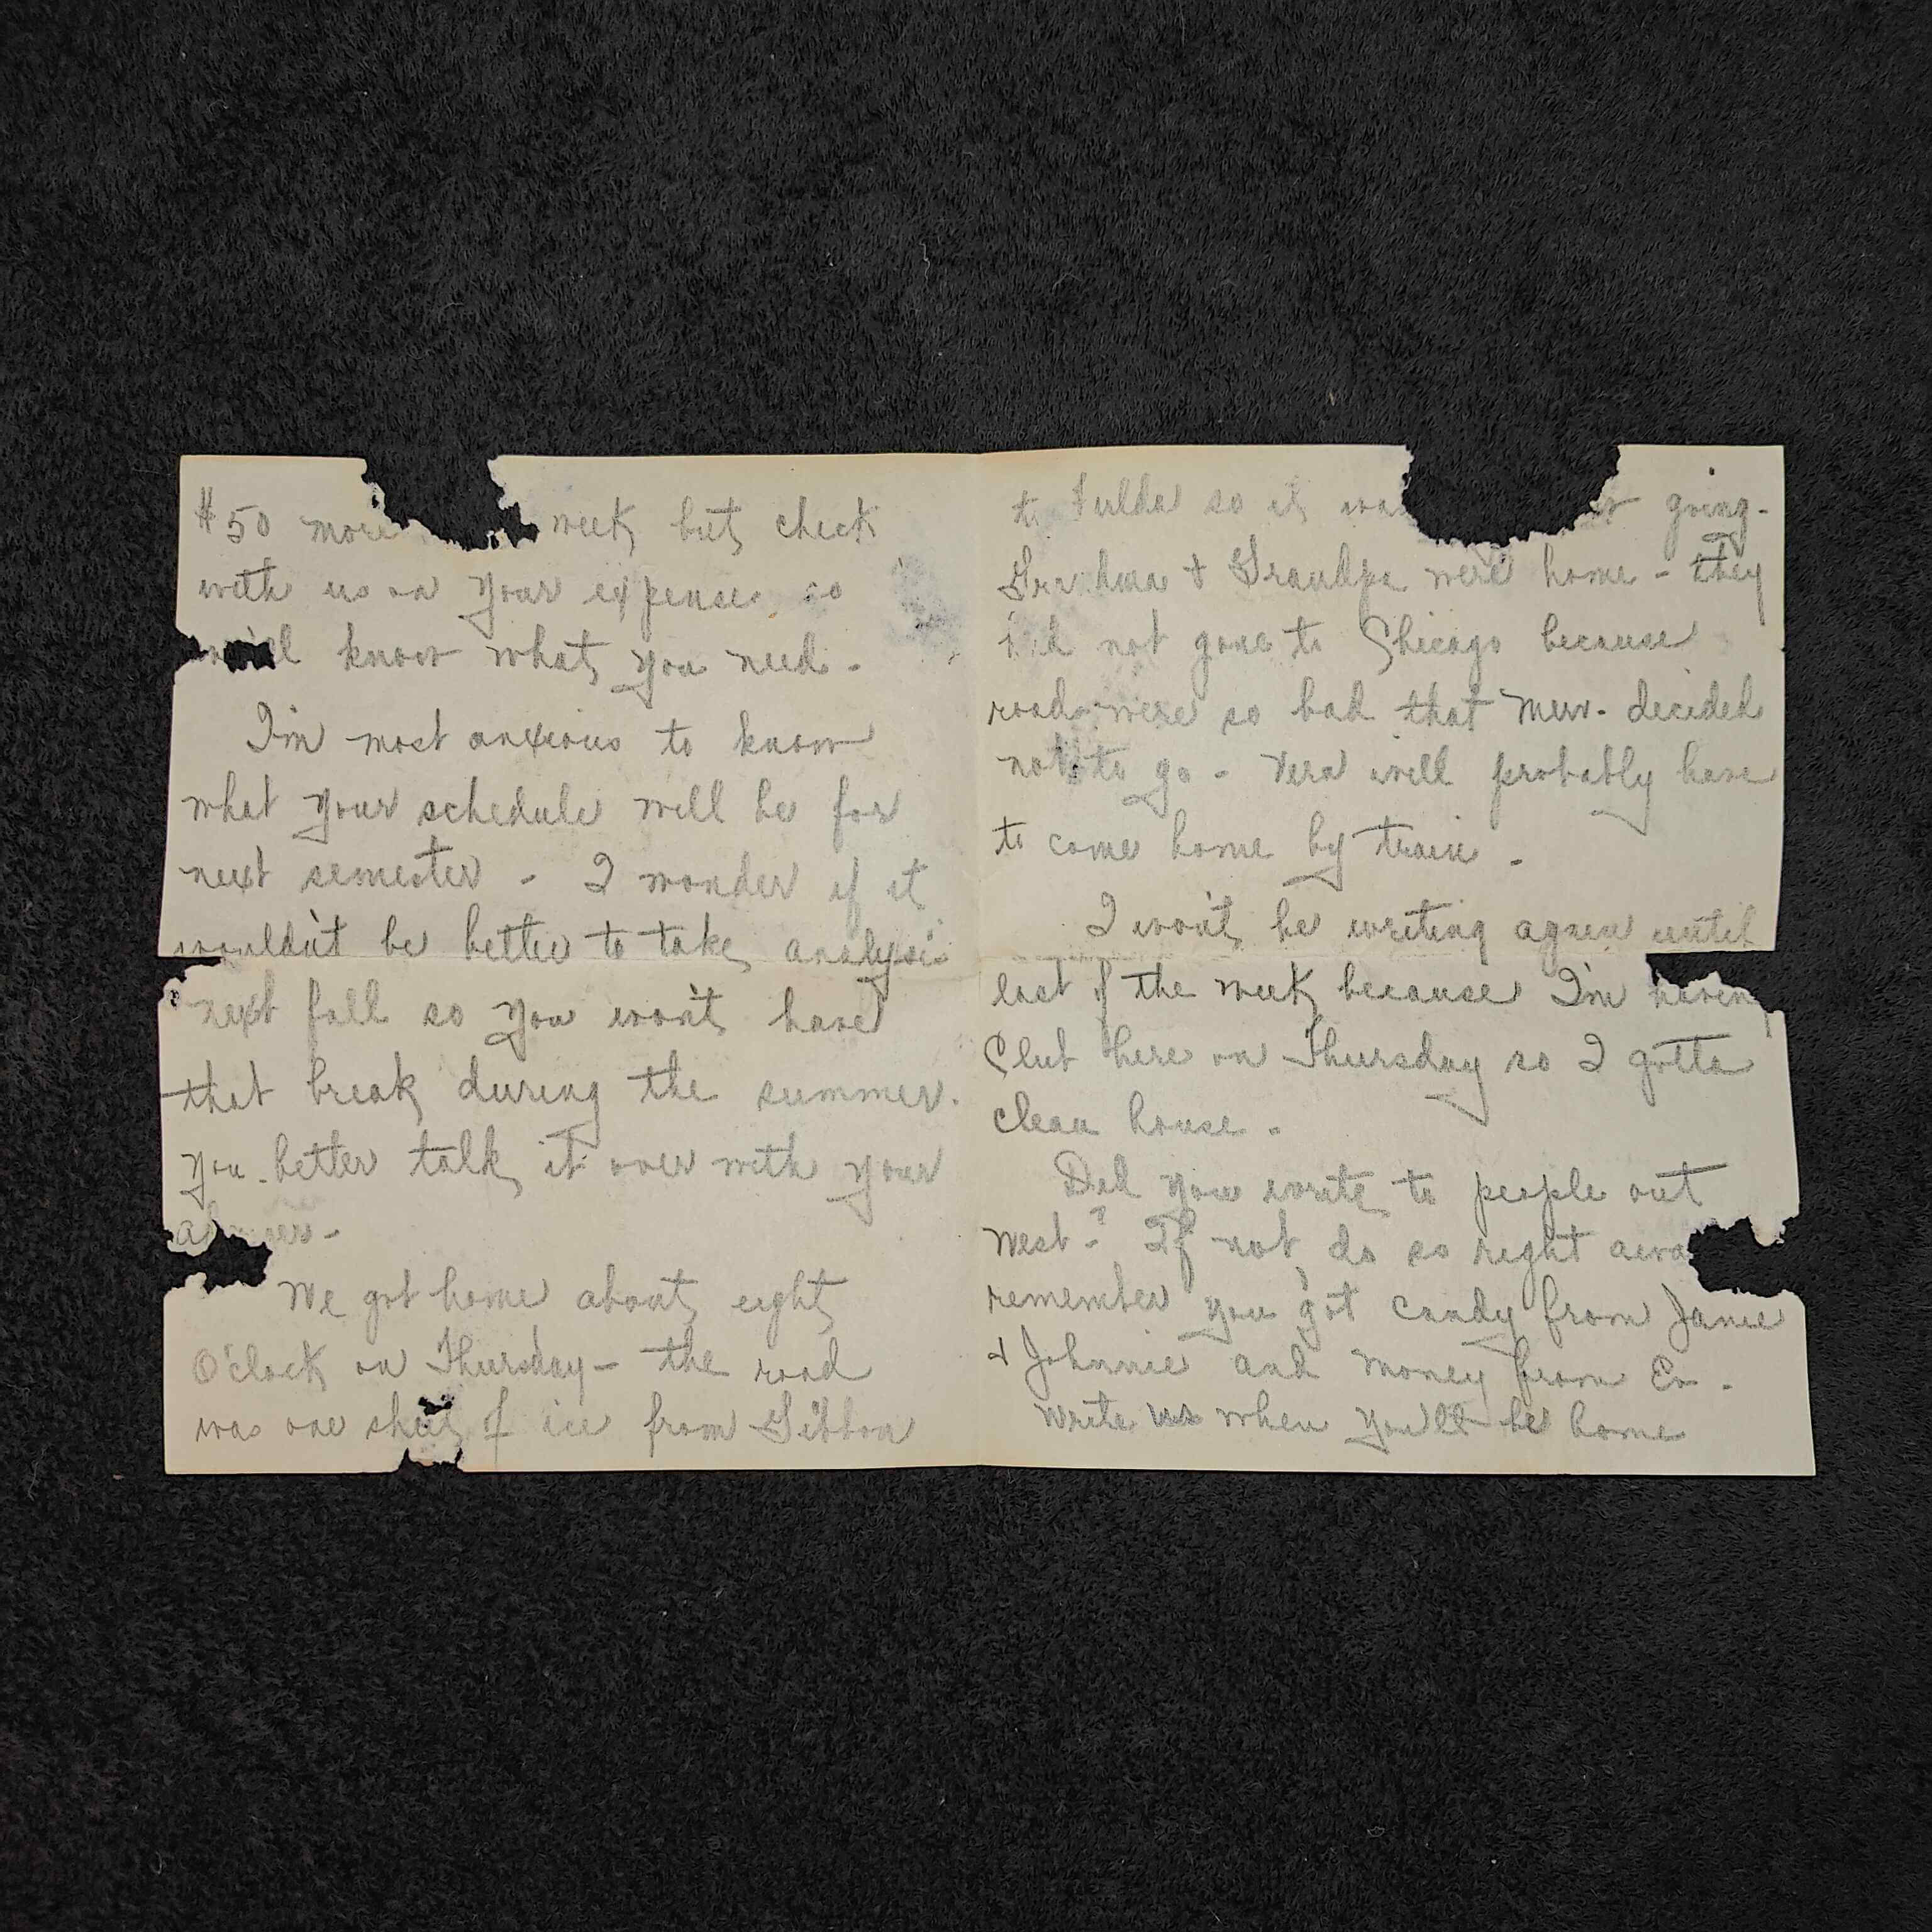 $50 more week but check
with us on your expenses so
we'll know what you need -
I'm most anxious to know
what your schedule will be for
next semester - I wonder if it
wouldn't be better to take analysis
next fall so you won't have
that break during the summer.
you better talk it over with your
We got home about eight
O'clock on Thursday - the road
was one sheet of ice from Gibbon
to Fulda so it was going -
Grandma & Grandpa were home - they
had not gone to Chicago because
roads were so bad that Merv. decided
not to go - Vera will probably have
to come home by train -
I won't be writing again until
last of the week because I'm haven
Club here on Thursday so I gotta
clean house -
Did you write to people out
West - ? If not, do so right
remember you got candy from Janie
& Johnnie and money from Ev -
Write us when you'll be home